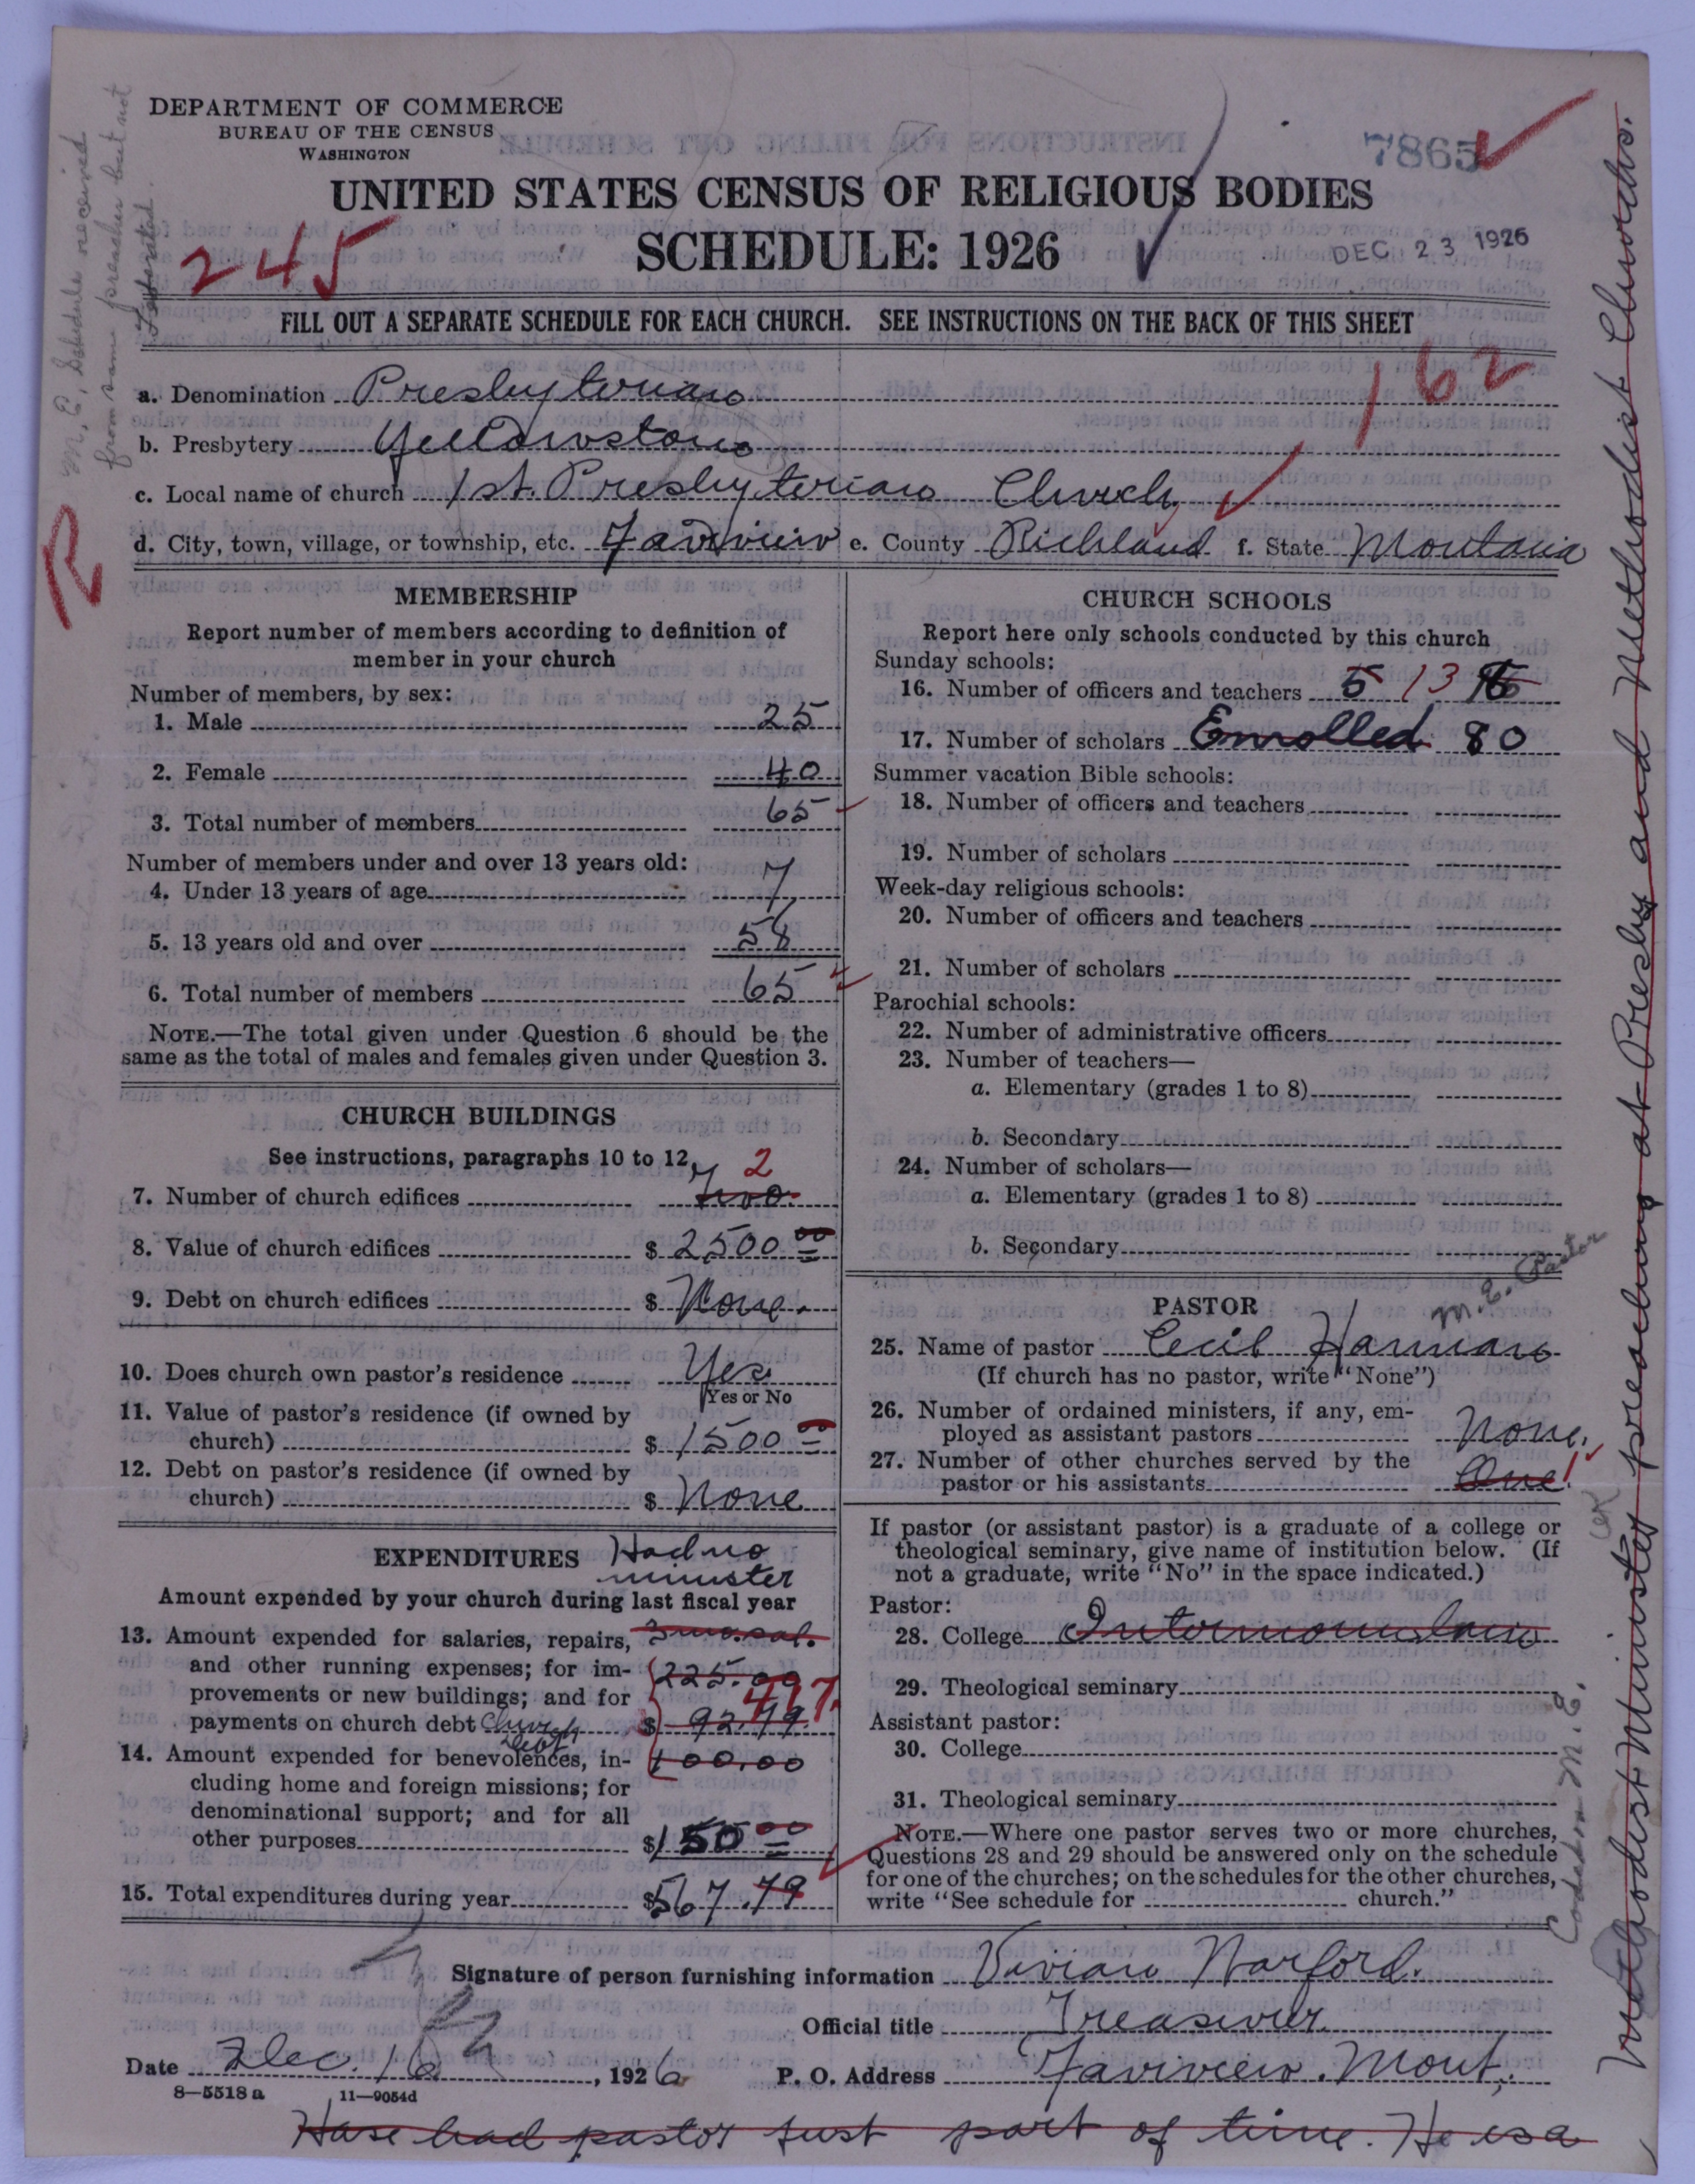 DEPARTMENT OF COMMERCE
BUREAU OF THE CENSUS
WASHINGTON
7865
UNITED STATES CENSUS OF RELIGIOUS BODIES
SCHEDULE: 1926
DEC 23 1926
245
FILL OUT A SEPARATE SCHEDULE FOR EACH CHURCH. SEE INSTRUCTIONS ON THE BACK OF THIS SHEET
162
a. Denomination Presbyterian
b. Presbytery Yellowstone
c. Local name of church 1st. Presbyterian Church
d. City, town, village, or township, etc. Fairview e. County Richland f. State Montana
R
M. E. Schedule received
from same preacher but not
MEMBERSHIP
Report number of members according to definition of
member in your church
Number of members, by sex:
1. Male 25
2. Female 40
3. Total number of members 65
Number of members under and over 13 years old:
4. Under 13 years of age 7
5. 13 years old and over 58
6. Total number of members 65
NOTE.—The total given under Question 6 should be the
same as the total of males and females given under Question 3.
CHURCH BUILDINGS
See instructions, paragraphs 10 to 12
7. Number of church edifices two. 2
8. Value of church edifices $ 2500 00
9. Debt on church edifices $ None.
10. Does church own pastor's residence Yes
Yes or No
11. Value of pastor's residence (if owned by
church) $ 1500 00
12. Debt on pastor's residence (if owned by
church) $ None
EXPENDITURES Had no
minister
Amount expended by your church during last fiscal year
13. Amount expended for salaries, repairs, 3 mo. sal.
and other running expenses; for im- 225.00
provements or new buildings; and for 417.
payments on church debt Church debt $ 92.79
14. Amount expended for benevolences, in- 100.00
cluding home and foreign missions; for
denominational support; and for all
other purposes $ 150 00
15. Total expenditures during year $567.79
CHURCH SCHOOLS
Report here only schools conducted by this church
Sunday schools:
16. Number of officers and teachers 5 13
17. Number of scholars Enrolled 80
Summer vacation Bible schools:
18. Number of officers and teachers
19. Number of scholars
Week-day religious schools:
20. Number of officers and teachers
21. Number of scholars
Parochial schools:
22. Number of administrative officers
23. Number of teachers—
a. Elementary (grades 1 to 8)
b. Secondary
24. Number of scholars—
a. Elementary (grades 1 to 8)
b. Secondary
M.E. Pastor
PASTOR
25. Name of pastor Cecil Harman
(If church has no pastor, write "None")
26. Number of ordained ministers, if any, em-
ployed as assistant pastors None.
27. Number of other churches served by the
pastor or his assistants One 1
If pastor (or assistant pastor) is a graduate of a college or
theological seminary, give name of institution below. (If
not a graduate, write "No" in the space indicated.)
Pastor:
28. College Intermountain
29. Theological seminary
Assistant pastor:
30. College
31. Theological seminary
NOTE.—Where one pastor serves two or more churches,
Questions 28 and 29 should be answered only on the schedule
for one of the churches; on the schedules for the other churches,
write "See schedule for church."
Coded in M.E.
Signature of person furnishing information Vivian Warford.
Official title Treasurer
Date Dec. 16, 1926 P. O. Address Fairview, Mont.
8—5518 a 11—9054d
Have had pastor just part of time. He is a
Methodist Minister preaching at Presby and Methodist Churches.